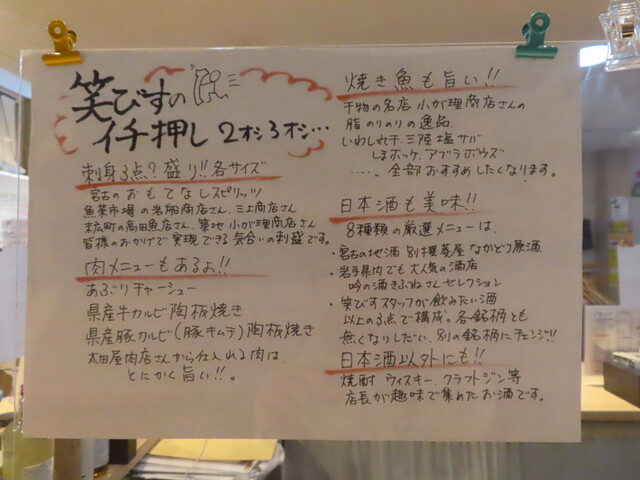 笑びすの
イチ押し 2オシ3オシ…
刺身3点?盛り!!各サイズ
宮古のおもてなしスピリッツ
魚菜市場の岩船商店さん、三上商店さん
末広町の髙田魚店さん、築地小が理商店さん
皆様のおかげで実現できる気合いの刺盛です。
肉メニューもあるょ!!
あぶりチャーシュー
県産牛カルビ陶板焼き
県産豚カルビ(豚キムチ)陶板焼き
太田屋肉店さんから仕入れる肉は
とにかく旨い!!。
焼き魚も旨い!!
干物の名店 小が理商店さんの
脂のりのりの逸品、
いわし丸干、三陸塩サバ
しまホッケ、アブラボウズ
……、全部おすすめしたくなります。
日本酒も美味!!
8種類の厳選メニューは、
・宮古の地酒 別撰菱屋 なかどう原酒
・岩手県内でも大人気の酒店
吟の酒きぶねさんセレクション
・笑びすスタッフが飲みたい酒
以上の3点で構成。各銘柄とも
無くなりしだい、別の銘柄にチェンジ!!
日本酒以外にも!!
焼酎 ウィスキー、クラフトジン等
店長が趣味で集めたお酒です。